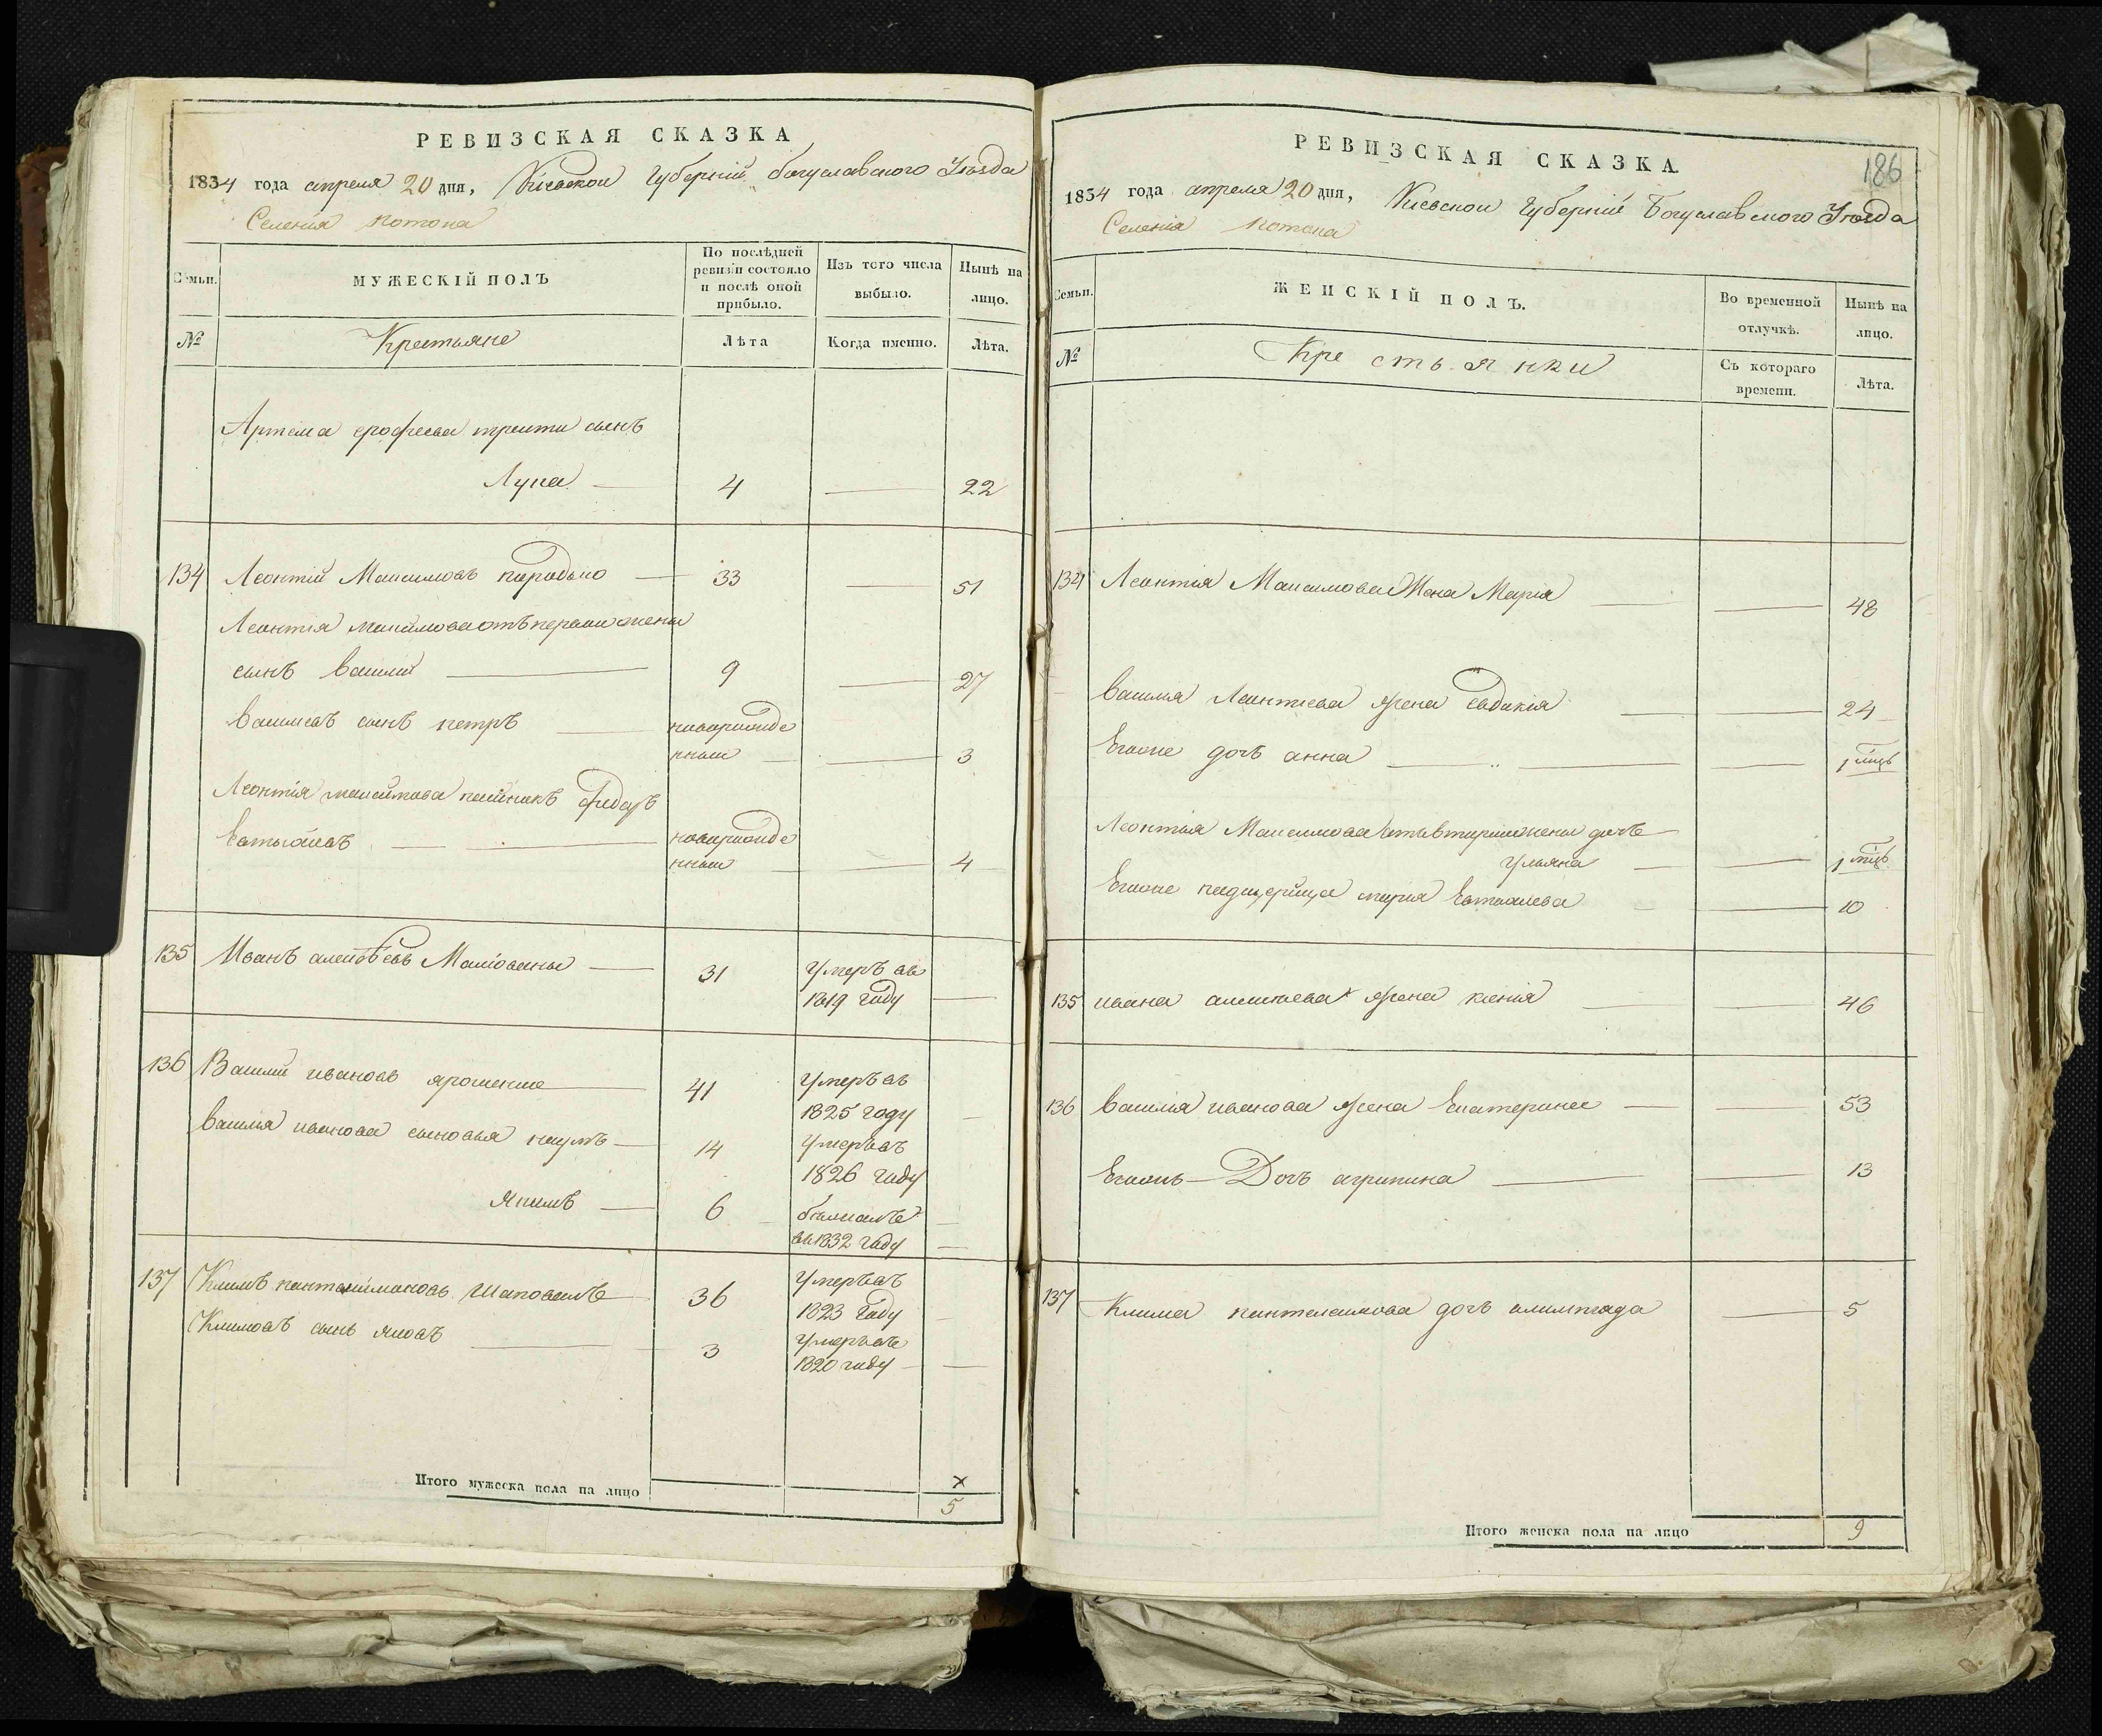 РЕВИЗСКАЯ СКАЗКА
1834 года апреля 20 дня, Киевской Губернии богуславского Уѣзда
Селения потока
Семьи.
МУЖЕСКІЙ ПОЛЪ
По послѣдней
ревизіи состояло
и послѣ оной
прибыло.
Изъ того числа
выбыло.
Нынѣ на
лицо.
№
Крестьяне
Лѣта
Когда именно.
Лѣта.
Артема ерофеева трети сынъ
Лука 4 22
134 Леонтій Максимовъ 33 51
Леонтія максимова отъ первои жены
сынъ василий 9 27
васильевъ сынъ петръ новорожде
нный 3
Леонтія максимова федоръ
новорожде
нный 4
135 Иванъ 31 Умеръ въ
1819 году
136 Василий ивановъ ярошенко 41 Умеръ въ
1825 году
василія иванова сыновья наумъ 14 Умеръ въ
1826 году
якимъ 6
въ 1832 году
137 Климъ пантелимоновъ Шаповалъ 36 Умеръ въ
1823 году
Климовъ сынъ яковъ 3 Умеръ въ
1820 году
Итого мужеска пола на лицо
x
5
186
РЕВИЗСКАЯ СКАЗКА
1834 года апреля 20 дня, Киевской Губернии Богуславского Уѣзда
Селенія потока
Семьи.
ЖЕНСКІЙ ПОЛЪ.
Во временной
отлучкѣ.
Нынѣ на
лицо.
№
Крестьянки
Съ котораго
времени.
Лѣта.
134 Леонтія Максимова Жена Марія 48
василія Леонтиева жена евдокія 24
Егоже дочь анна 1 мць
Леонтия Максимова отъ вторыи жены дочь
Ульяна 1 мць
Егоже падщерица марія 10
135 ивана алексиева жена ксенія 46
136 василія иванова жена Екатерина 53
Дочь агрипина 13
137 Клима пантелеимова дочь олимпиада 5
Итого женска пола на лицо 9